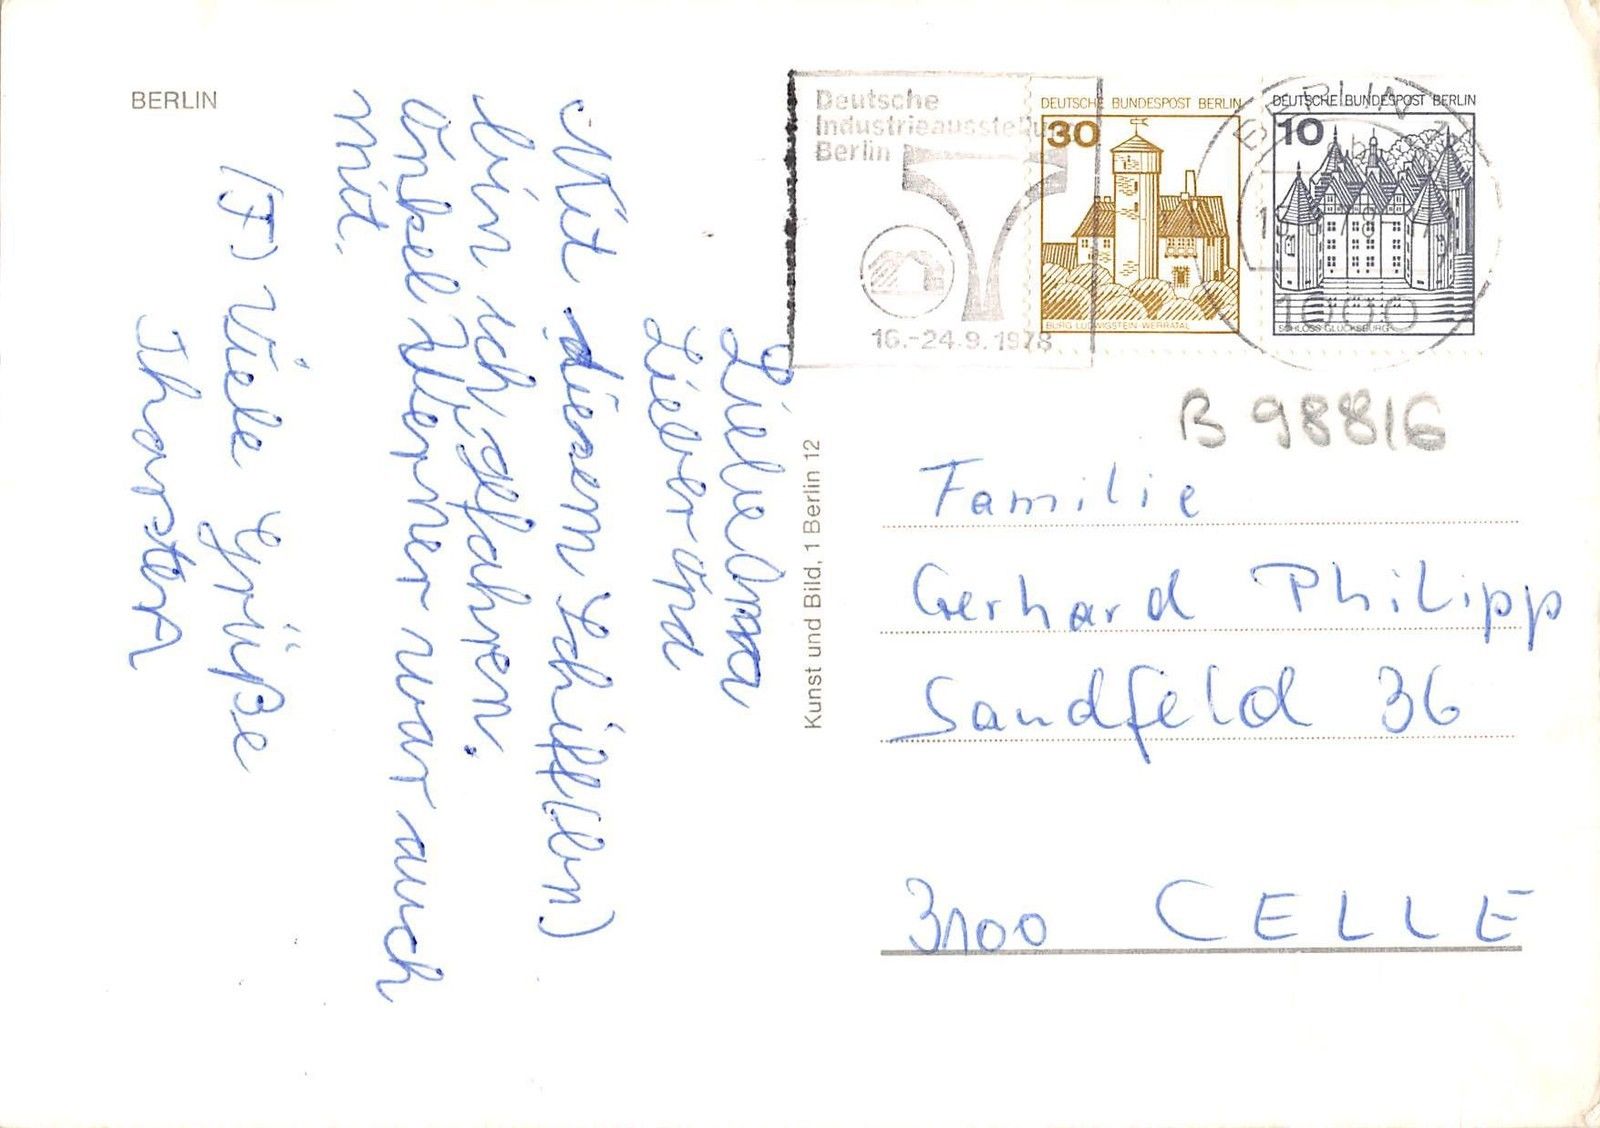 BERLIN
Liebe Oma
Lieber Opa
Mit diesem Schiff (oben)
bin ich gefahren.
Onkel Werner war auch
mit.
(F) Viele Grüße
Thorsten
Kunst und Bild, 1 Berlin 12
Deutsche
Industrieausstellung
Berlin
16.-24.9.1978
DEUTSCHE BUNDESPOST BERLIN
30
BURG LUDWIGSTEIN WERRATAL
DEUTSCHE BUNDESPOST BERLIN
10
SCHLOSS GLÜCKSBURG
BERLIN
1000
B 98816
Familie
Gerhard Philipp
Sandfeld 36
3100 CELLE